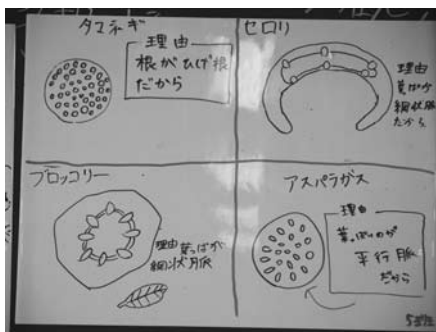 タマネギ
理由
根がひげ根
だから
セロリ
理由
葉が
網状脈
だから
ブロッコリー
理由 葉っぱが
網状脈
アスパラガス
理由
葉っぱいのが
平行脈
だから